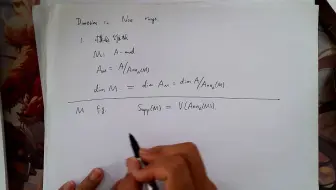 Dimension in Noe rings
1.
M: A-mod
A_M = A/Ann_A(M)
dim M = dim A_M = dim A/Ann_A(M)
M f.g. Supp(M) = V(Ann_A(M))